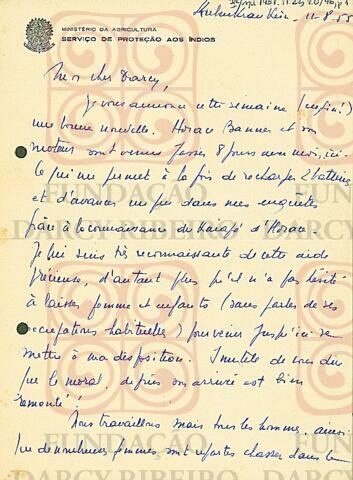 Kubenkrankêin, 11-8-55
MINISTÉRIO DA AGRICULTURA
SERVIÇO DE PROTEÇÃO AOS ÍNDIOS
Mon cher Darcy,
Je vous annonce cette semaine (enfin!)
une bonne nouvelle. Horace Banner et son
moteur sont venus passer 8 jours avec moi, ici.
Ce qui me permet à la fois de recharger 2 batteries
et d'avancer un peu dans mes enquêtes
grâce à la connaissance du Kaiapó d'Horace.
Je lui suis très reconnaissante de cette aide
précieuse, d'autant plus qu'il n'a pas hésité
à laisser femme et enfants (sans parler de ses
occupations habituelles) pour venir jusqu'ici se
mettre à ma disposition. Inutile de vous dire
que le moral, depuis son arrivée est bien
remonté!
Nous travaillons mais tous les hommes, ainsi
que de nombreuses femmes sont repartis chasser dans le
FUNDAÇÃO
DARCY RIBEIRO
FUNDAÇÃO
DARCY RIBEIRO